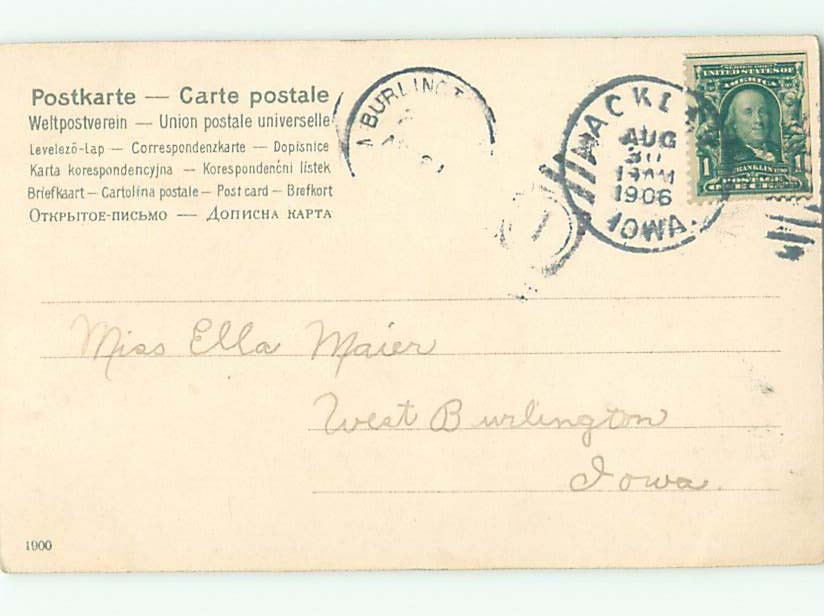 Postkarte — Carte postale
Weltpostverein – Union postale universelle
Levelező-Lap — Correspondenzkarte — Dopisnice
Karta korespondencyjna — Korespondenční lístek
Briefkaart – Cartolina postale – Post card – Brefkort
Открытое-письмо — Дописна карта
BURLINGT
AUG
30
1906
IOWA.
SERIES 1902
UNITED STATES OF
AMERICA
1 FRANKLIN 1
POSTAGE
Miss Ella Maier
West Burlington
Iowa.
1900